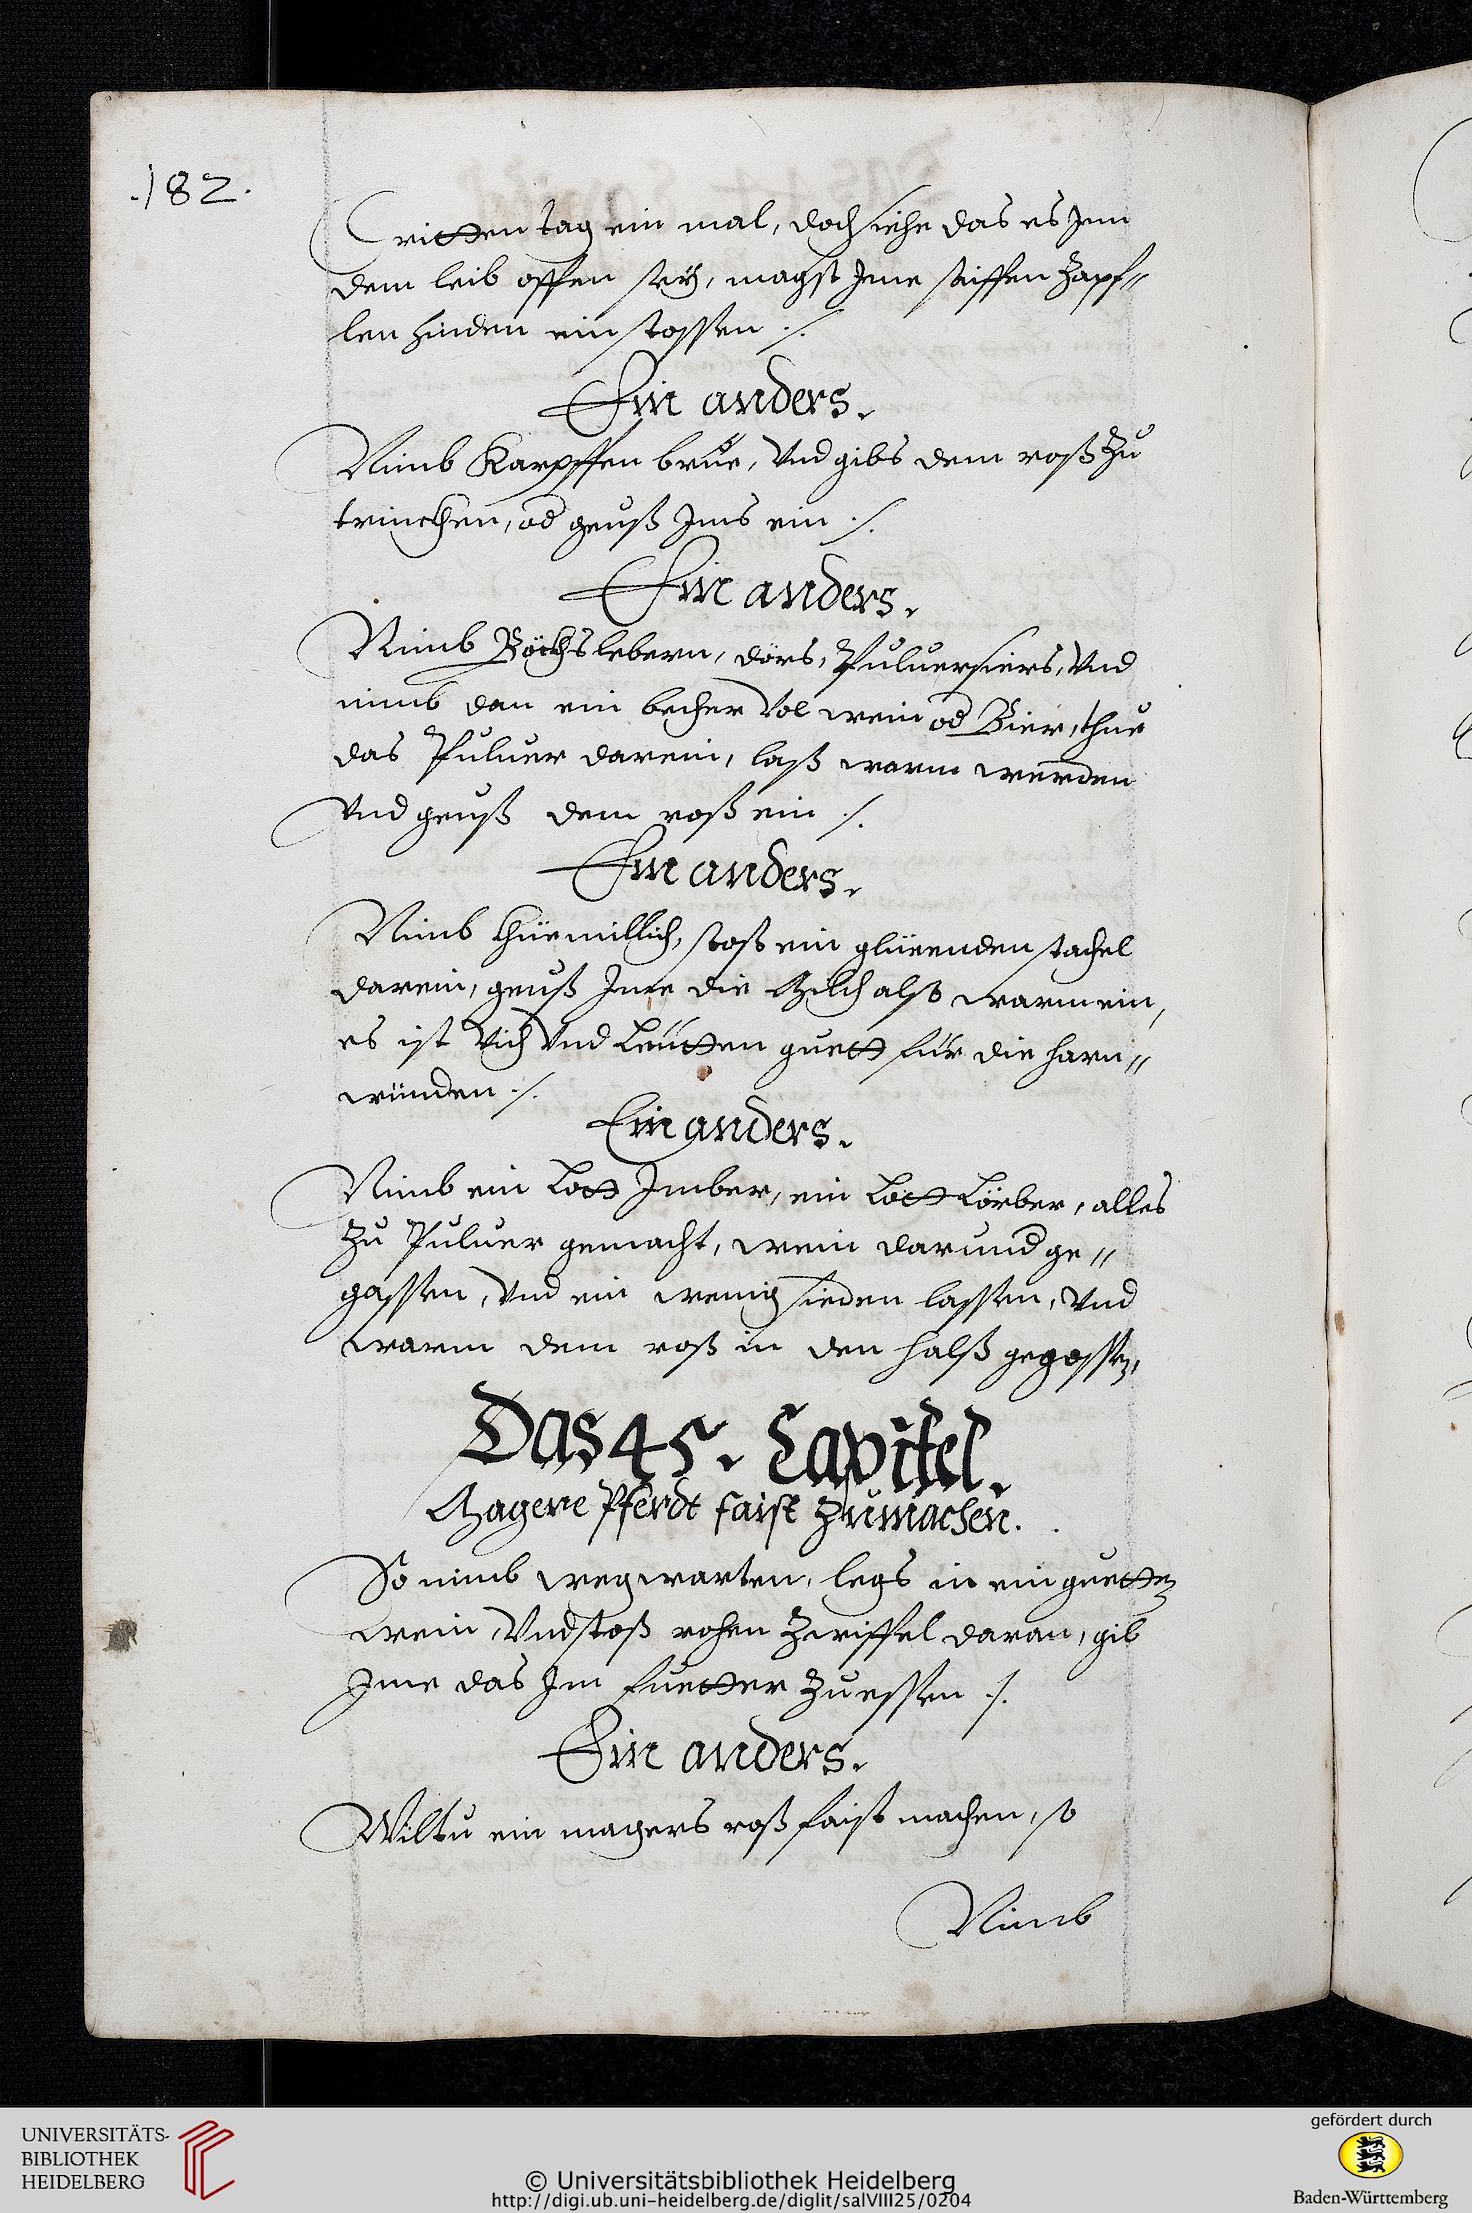 .182.
Dritten tag ein mal, doch siehe das es Jnn
dem leib offen seÿ, magst Jme saiffen Zapf=
len hinden ein stossen ./.
Ein anders.
Nimb Karpffen brüe, Vnd gibs dem roß Zu
trinckhen, od geuß Jms ein ./.
Ein anders.
Nimb Böckhs lebern, dörs, Puluersiers, Vnd
nimb dan ein becher Vol wein od Bier, thue
das Puluer darein, laß warm werden
Vnd geuß dem roß ein ./.
Ein anders.
Nimb khüemillich, stoß ein glüeenden stachel
darein, geuß Jme die Milch also warm ein,
es ist Vich Vnd Leütten guett für die harn=
winden ./.
Ein anders.
Nimb ein Lott Jmber, ein Lott Lörber, alles
Zu Puluer gemacht, wein darund ge=
gossen, Vnd ein wenig sieden lassen, Vnd
warm dem roß in den halß gegossen,
Das 45. Capitel.
Magere Pferdt faist Zumachen.
So nimb wegwarten, legs in ein guetten
wein, Vnd stoß rohen Zwiffel daran, gib
Jme das Jm fuetter Zu essen ./.
Ein anders.
Wiltu ein magers roß faist machen, so
Nimb
UNIVERSITÄTS-
BIBLIOTHEK
HEIDELBERG
© Universitätsbibliothek Heidelberg
http://digi.ub.uni-heidelberg.de/diglit/salVIII25/0204
gefördert durch
Baden-Württemberg